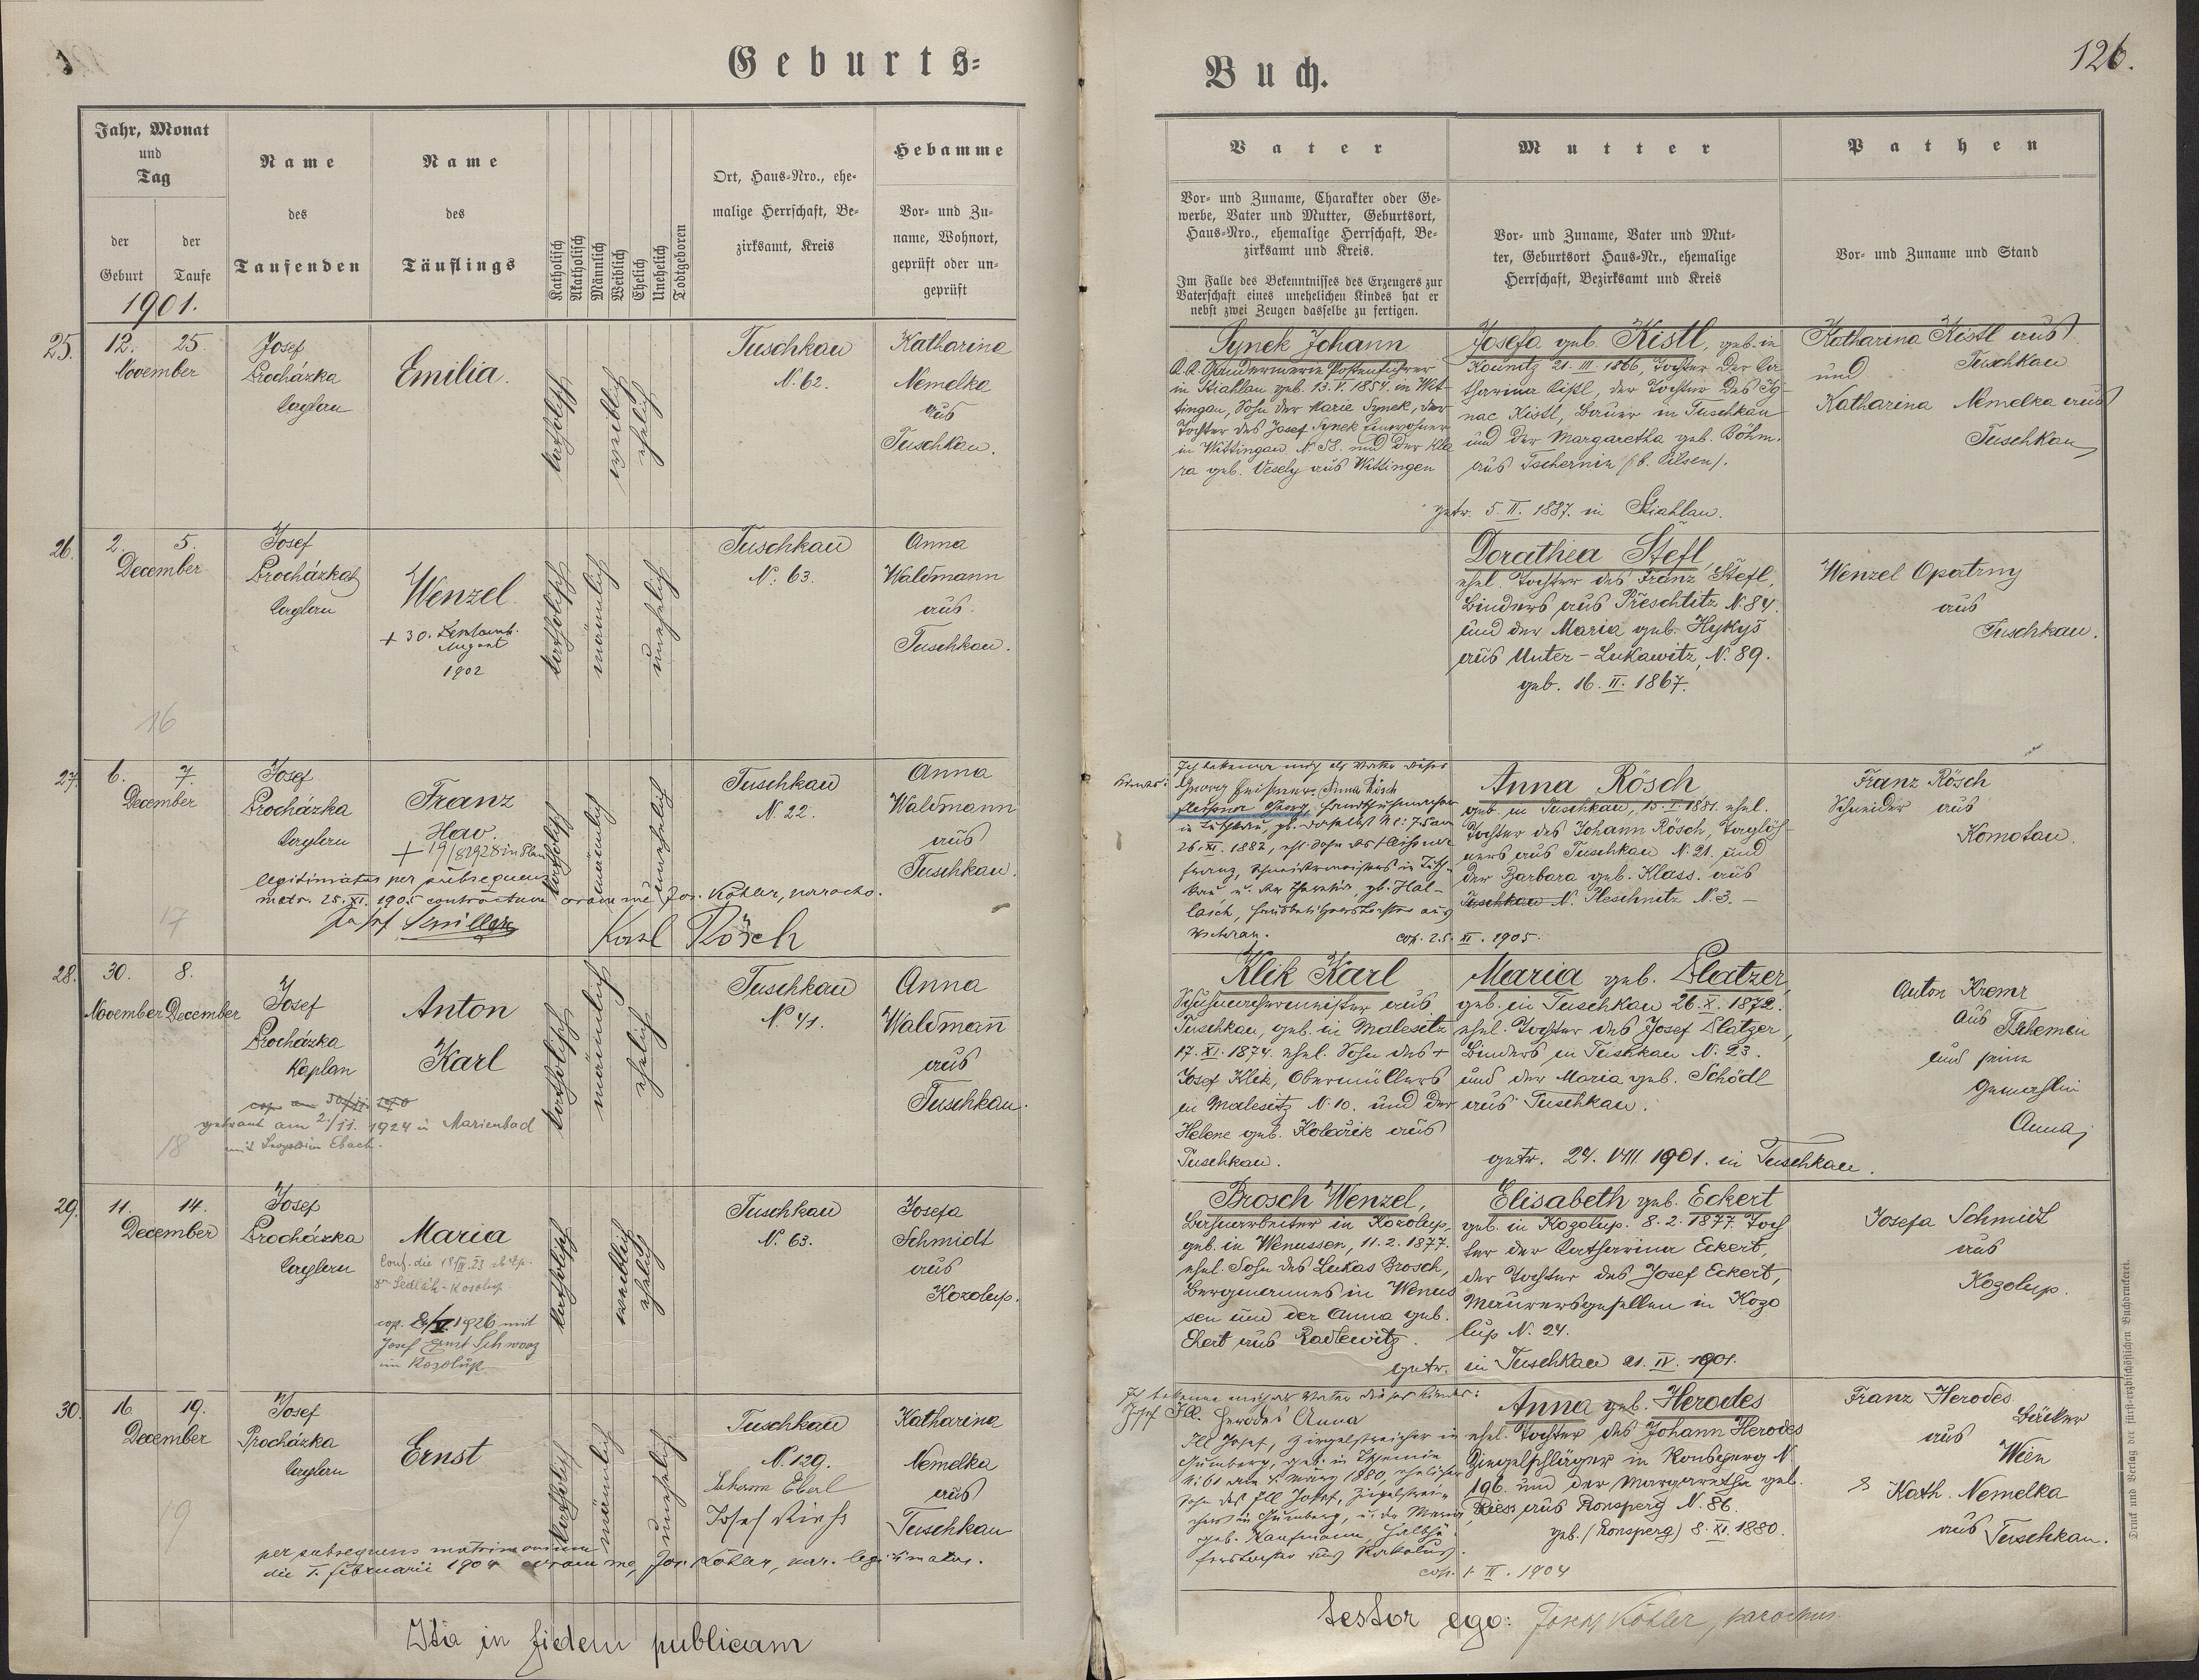 Geburts=
Buch.
126.
Jahr, Monat
und
Tag
der
Geburt
der
Taufe
Name
des
Taufenden
Name
des
Täuflings
Katholisch
Akatholisch
Männlich
Weiblich
Ehelich
Unehelich
Todtgeboren
Ort, Haus=Nro., ehe=
malige Herrschaft, Be=
zirksamt, Kreis
Hebamme
Vor= und Zu=
name, Wohnort,
geprüft oder un=
geprüft
Vater
Vor= und Zuname, Charakter oder Ge=
werbe, Vater und Mutter, Geburtsort,
Haus=Nro., ehemalige Herrschaft, Be=
zirksamt und Kreis.
Im Falle des Bekenntnisses des Erzeugers zur
Vaterschaft eines unehelichen Kindes hat er
nebst zwei Zeugen dasselbe zu fertigen.
Mutter
Vor= und Zuname, Vater und Mut=
ter, Geburtsort Haus=Nr., ehemalige
Herrschaft, Bezirksamt und Kreis
Pathen
Vor= und Zuname und Stand
1901.
25.
12. 25.
November
Josef
Procházka
Caplan
Emilia.
katholisch
weiblich
ehelich
Tuschkau
N. 62.
Katharina
Nemelka
aus
Tuschkau.
Synek Johann
k. k. Gendarmerie Postenführer
in Stiahlau geb. 13. V. 1854 in Wit-
tingau, Sohn der Marie Synek, der
Tochter des Josef Synek Einwohner
in Wittingau N. 58. und der Kla
ra geb. Vesely aus Wittingen
Josefa geb. Kistl, geb. in
Kounitz 21. III. 1866, Tochter der Ka
tharina Kistl, der Tochter des Ig-
nac Kistl, Bauer in Tuschkau
und der Margaretha geb. Böhm.
aus Tschernin (b. Pilsen).
getr. 5. II. 1887. in Stiahlau.
Katharina Kistl aus
Tuschkau
und
Katharina Nemelka aus
Tuschkau
26.
2. 5.
December
Josef
Procházka
Caplan
Wenzel
+ 30. Septemb.
August
1902
katholisch
männlich
unehelich
Tuschkau
N. 63.
Anna
Waldmann
aus
Tuschkau.
Dorathea Štefl
ehel. Tochter des Franz Štefl,
Binders aus Přeschtitz N. 84.
und der Maria geb. Hykyš
aus Unter-Lukawitz, N. 89.
geb. 16. II. 1867.
Wenzel Opatrny
aus
Tuschkau.
16
27.
6. 7.
December
Josef
Procházka
Caplan
Franz
Hav.
+ 19/8 1928 in Plan
katholisch
männlich
unehelich
Tuschkau
N. 22.
Anna
Waldmann
aus
Tuschkau.
legitimatus per subsequens
matr. 25. XI. 1905 contractum coram me Jos. Köhler, parocho.
Karl Rösch
17
Ich bekenne mich als Vater dieses
Kindes:
26. XI. 1882, ehl. Sohn des
Anna Rösch
geb. in Tuschkau, 15. I. 1881. ehel.
Tochter des Johann Rösch, Taglöh-
ners aus Tuschkau N. 21. und
der Barbara geb. Klass. aus
Tuschkau N. Pleschnitz N. 3. —
cop. 25. XI. 1905.
Franz Rösch
Schneider aus
Komotau.
28.
30. 8.
November December
Josef
Procházka
Kaplan
Anton
Karl
katholisch
männlich
ehelich
Tuschkau
N. 41.
Anna
Waldmañ
aus
Tuschkau.
getraut am 2/11. 1924 in Marienbad
mit Leopoldine Ebach.
18
Klik Karl
Schuhmachermeister aus
Tuschkau, geb. in Malesitz
17. XI. 1874. ehel. Sohn des +
Josef Klik, Obermüllers
in Malesitz N. 10. und der
Helene geb. Kolařik aus
Tuschkau.
Maria geb. Platzer,
geb. in Tuschkau 26. X. 1872.
ehel. Tochter des Josef Platzer,
Binders in Tuschkau N. 23.
und der Maria geb. Schödl
aus Tuschkau.
getr. 24. VIII. 1901. in Tuschkau.
Anton Kremr
aus
und seine
Gemahlin
Anna
29.
11. 14.
December
Josef
Procházka
Caplan
Maria
cop. 1926 mit
Josef Ernst Schwarz
in Kozolup
katholisch
weiblich
ehelich
Tuschkau
N. 63.
Josefa
Schmidt
aus
Kozolup.
Brosch Wenzel,
Bahnarbeiter in Kozolup.
geb. in Wenussen, 11. 2. 1877.
ehel. Sohn des Lukas Brosch,
Bergmannes in Wenus
sen und der Anna geb.
Ekert aus Radlewitz.
Elisabeth geb. Eckert
geb. in Kozolup. 8. 2. 1877. Toch
ter der Catharina Eckert,
der Tochter des Josef Eckert,
Maurersgesellen in Kozo
lup N. 24.
getr. in Tuschkau 21. IV. 1901.
Josefa Schmidt
aus
Kozolup.
30.
16. 19.
December
Josef
Procházka
Caplan
Ernst
katholisch
männlich
unehelich
Tuschkau
N. 129.
Katharina
Nemelka
aus
Tuschkau
per subsequens matrimonium
die 1. februarii 1904 coram me, Jos. Köhler, par. legitimatus.
19
Ich bekenne mich als Vater dieses Kindes:
Josef Ill. Herodes Anna
Ill Josef, Ziegelstreicher in
N: 61 am 4. März 1880, ehelicher
Sohn des Ill Josef, Ziegelstrei-
geb. Kaufmann,
Anna geb. Herodes
ehel. Tochter des Johann Herodes
Ziegelschläger in Ronsperg N.
196. und der Margaretha geb.
Riess, aus Ronsperg N. 86.
geb. (Ronsperg) 8. XI. 1880.
cop. 1. II. 1904
Franz Herodes
Bäcker
aus
Wien
& Kath. Nemelka
aus Tuschkau.
Ita in fidem publicam
testor ego: Josef Köhler, parochus.
Druck und Verlag der fürst=erzbischöflichen Buchdruckerei.